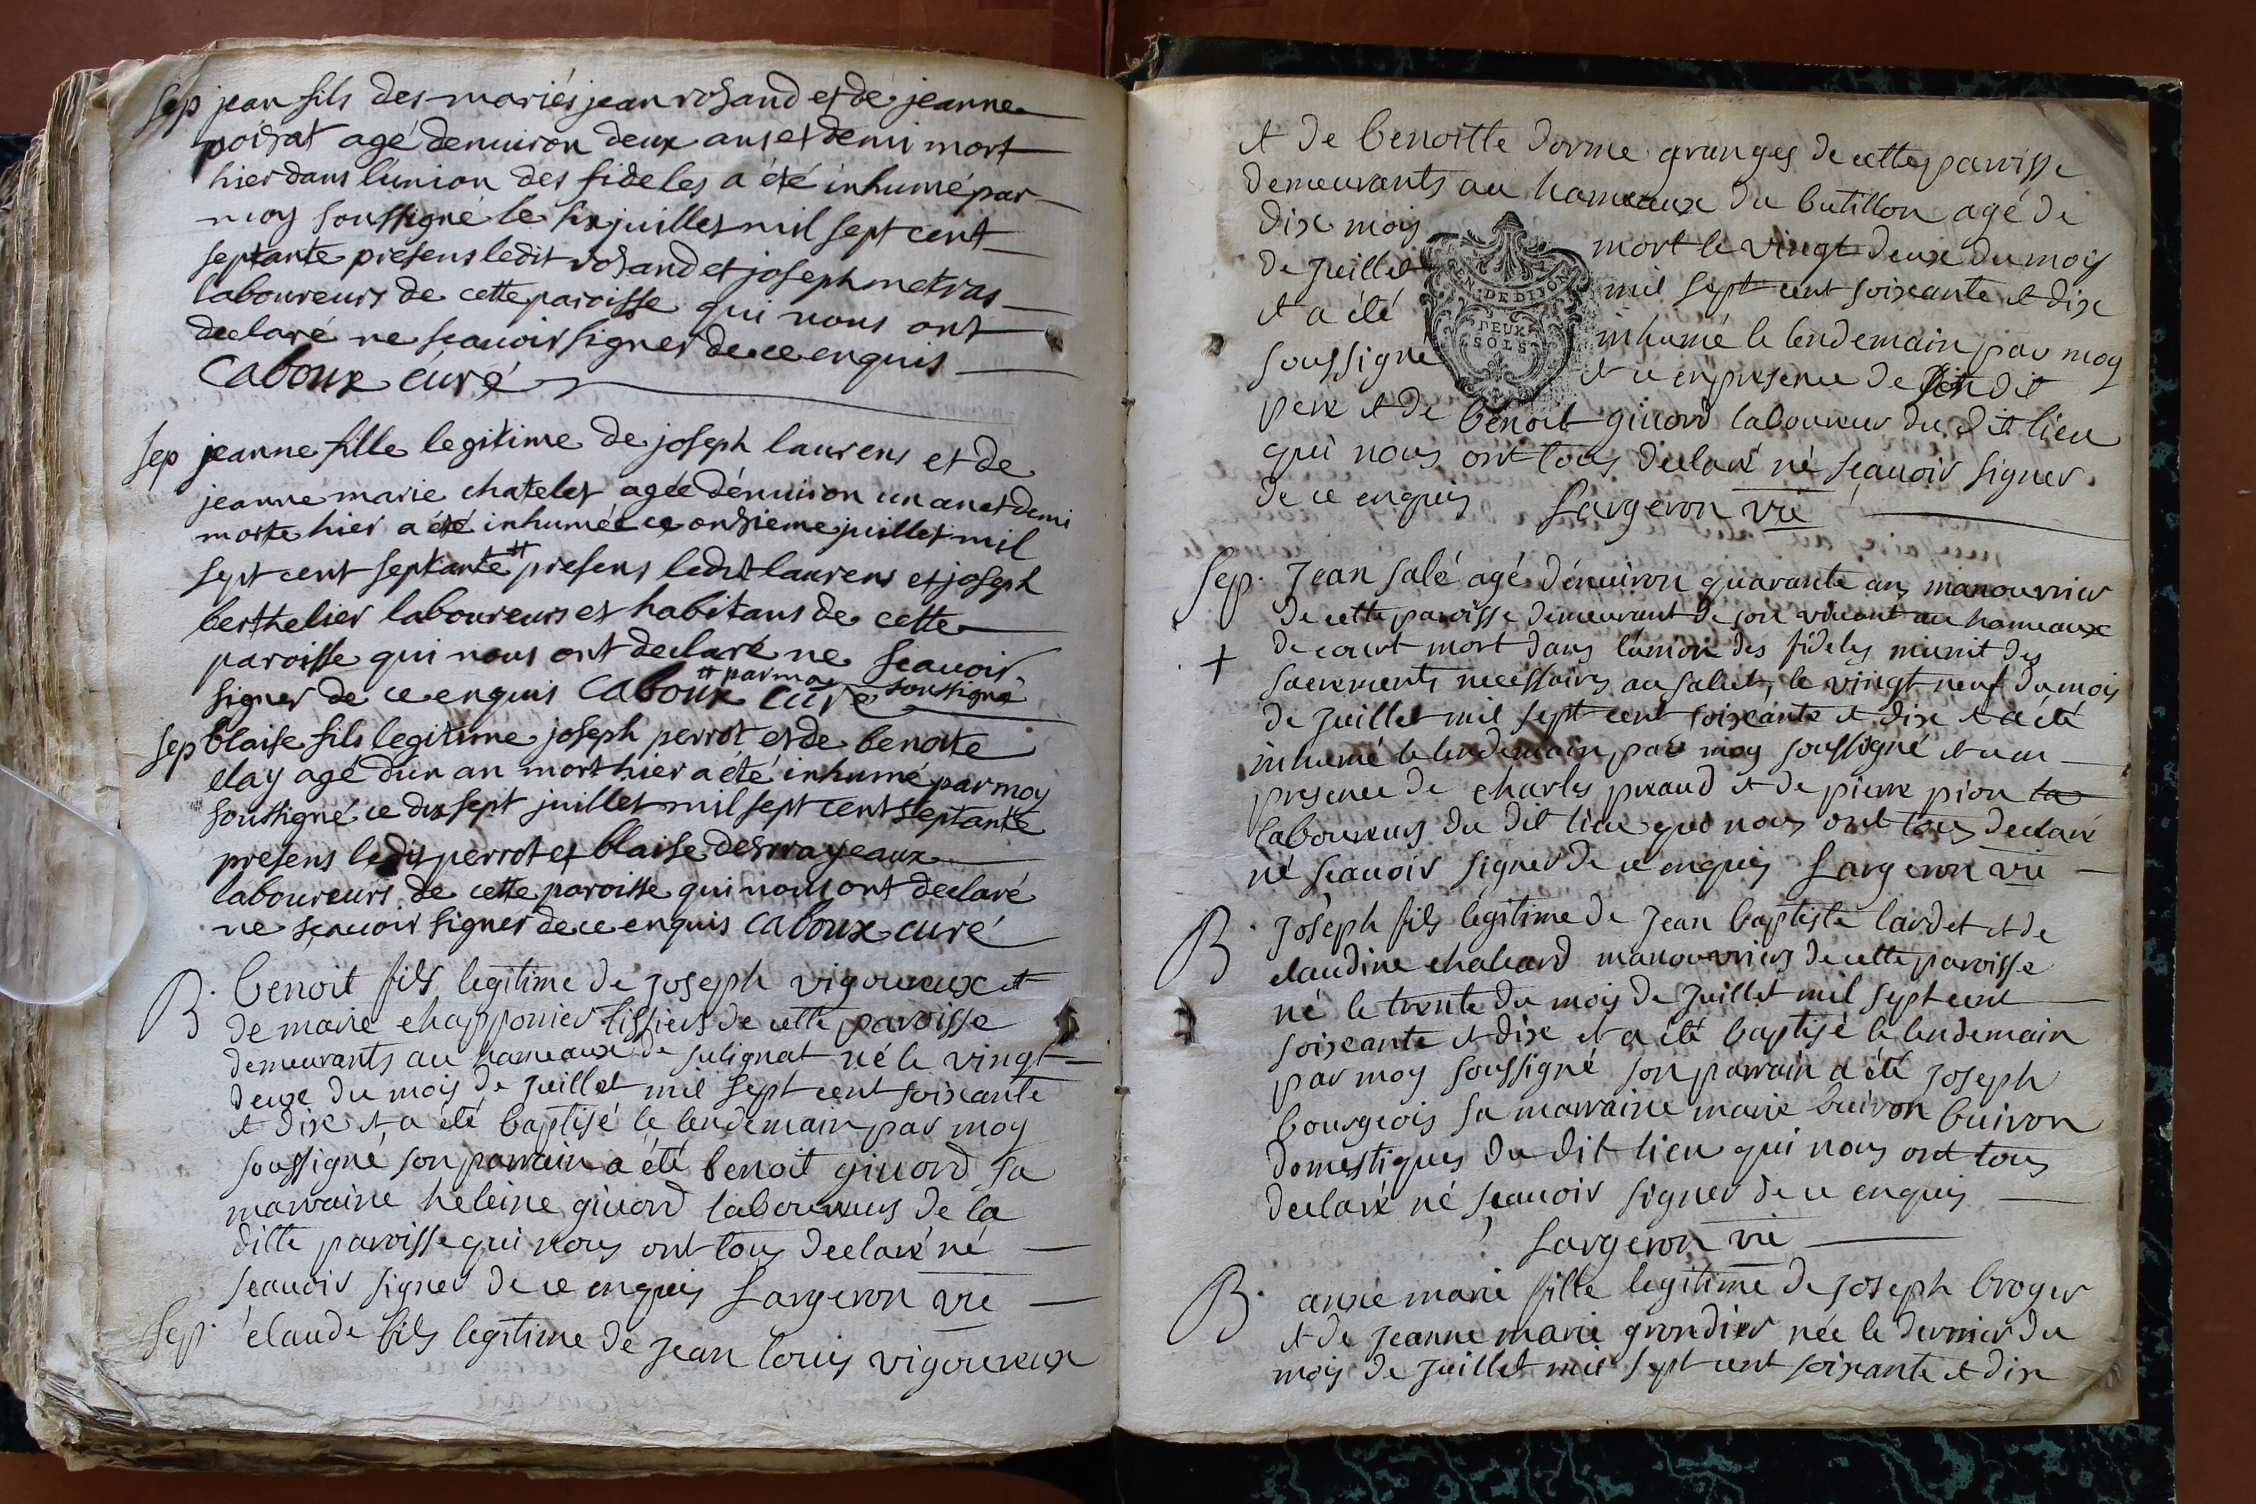 sep jean fils des mariés jean rosand et de jeanne
poisat agé denuiron deux ans et demi mort
hier dans l'union des fideles a été inhumé par
moy soussigné le six juillet mil sept cent
septante présens ledit rosand et joseph metras
laboureurs de cette paroisse qui nous ont
declaré ne scauoir signer de ce enquis
Caboux curé
sep jeanne fille legitime de joseph laurens et de
jeanne marie chatelet agée dénuiron un an et demi
morte hier a été inhumée ce onsieme juillet mil
sept cent septante # presens ledit laurens et joseph
berthelier laboureurs et habitans de cette
paroisse qui nous ont declaré ne scauoir
signer de ce enquis Caboux curé # par moy soussigné
sep blaise fils legitime joseph perrot et de benoite
elay agé d'un an mort hier a été inhumé par moy
soussigné ce dix sept juillet mil sept cent septante
presens ledit perrot et blaise desmayeaux
laboureurs de cette paroisse qui nous ont declaré
ne sçauoir signer de ce enquis Caboux curé
B. benoit fils legitime de joseph vigoureux et
de marie chapponier tissiers de cette paroisse
demeurants au hameaux de sulignat né le vingt
deux du mois de juillet mil sept cent soixante
et dix et a été baptisé le lendemain par moy
soussigné son parrain a été benoit giuord sa
marraine heleine giuord laboureurs de la
ditte paroisse qui nous ont tous declaré né
scauoir signer de ce enquis Sargeron vic
Sep. claude fils legitime de jean louis vigoureux
et de benoitte dorme granges de cette parroisse
demeurants au hameaux du butillon agé de
dix mois mort le vingt deux du mois
de juillet mil sept cent soixante et dix
et a été inhumé le lendemain par moy
soussigné et ce en presence de son dit
pere et de benoit giuord laboureur du dit lieu
qui nous ont tous declaré né scauoir signer
de ce enquis Sargeron vic
GEN. DE DIJON
DEUX
SOLS
Sep. Jean salé agé dénuiron quarante ans manouvrier
de cette paroisse demeurant de son viuant au hameaux
de court mort dans lúnion des fideles munit des
+ sacrements necessaires au salut, le vingt neuf du mois
de juillet mil sept cent soixante et dix et a été
inhumé le lendemain par moy soussigné et ce en
presence de charles preaud et de pierre pion la
laboureurs du dit lieu qui nous ont tous declaré
né scauoir signer de ce enquis Sargeron vic
B. Joseph fils légitime de Jean baptiste lardet et de
claudine chaleard manouvriers de cette paroisse
né le trente du mois de juillet mil sept cent
soixante et dix et a été baptisé le lendemain
par moy soussigné son parrain a été Joseph
bourgeois sa marraine marie buiron buiron
domestiques du dit lieu qui nous ont tous
declaré né scauoir signer de ce enquis
Sargeron vic
B. anne marie fille legitime de Joseph broyer
et de Jeanne marie grondier née le dernier du
mois de Juillet mil sept cent soixante et dix